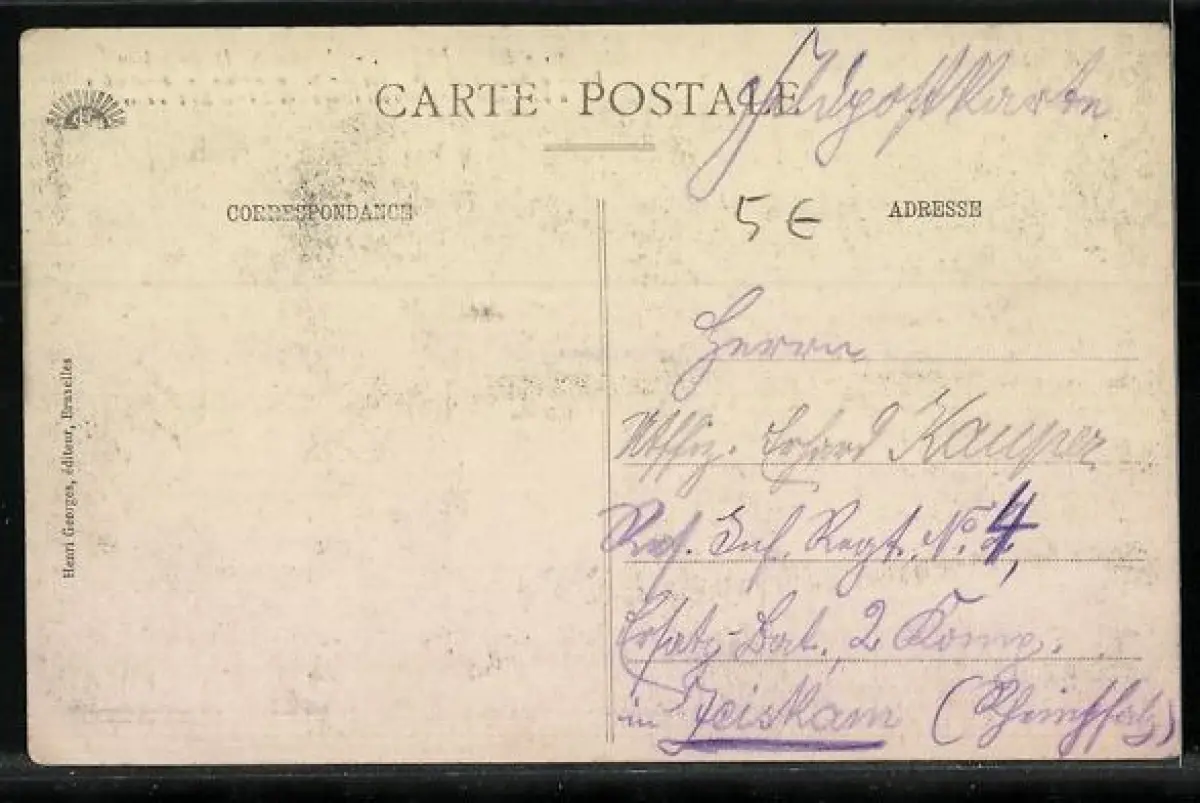 CARTE POSTALE
Feldpostkarte
CORRESPONDANCE
5 €
ADRESSE
Herrn
Utffiz. Erhard Kauper
Res. Inf. Regt. No. 4,
Ersatz-Bat., 2 Komp.
in Zeiskam (Rheinpfalz)
Henri Georges, éditeur, Bruxelles